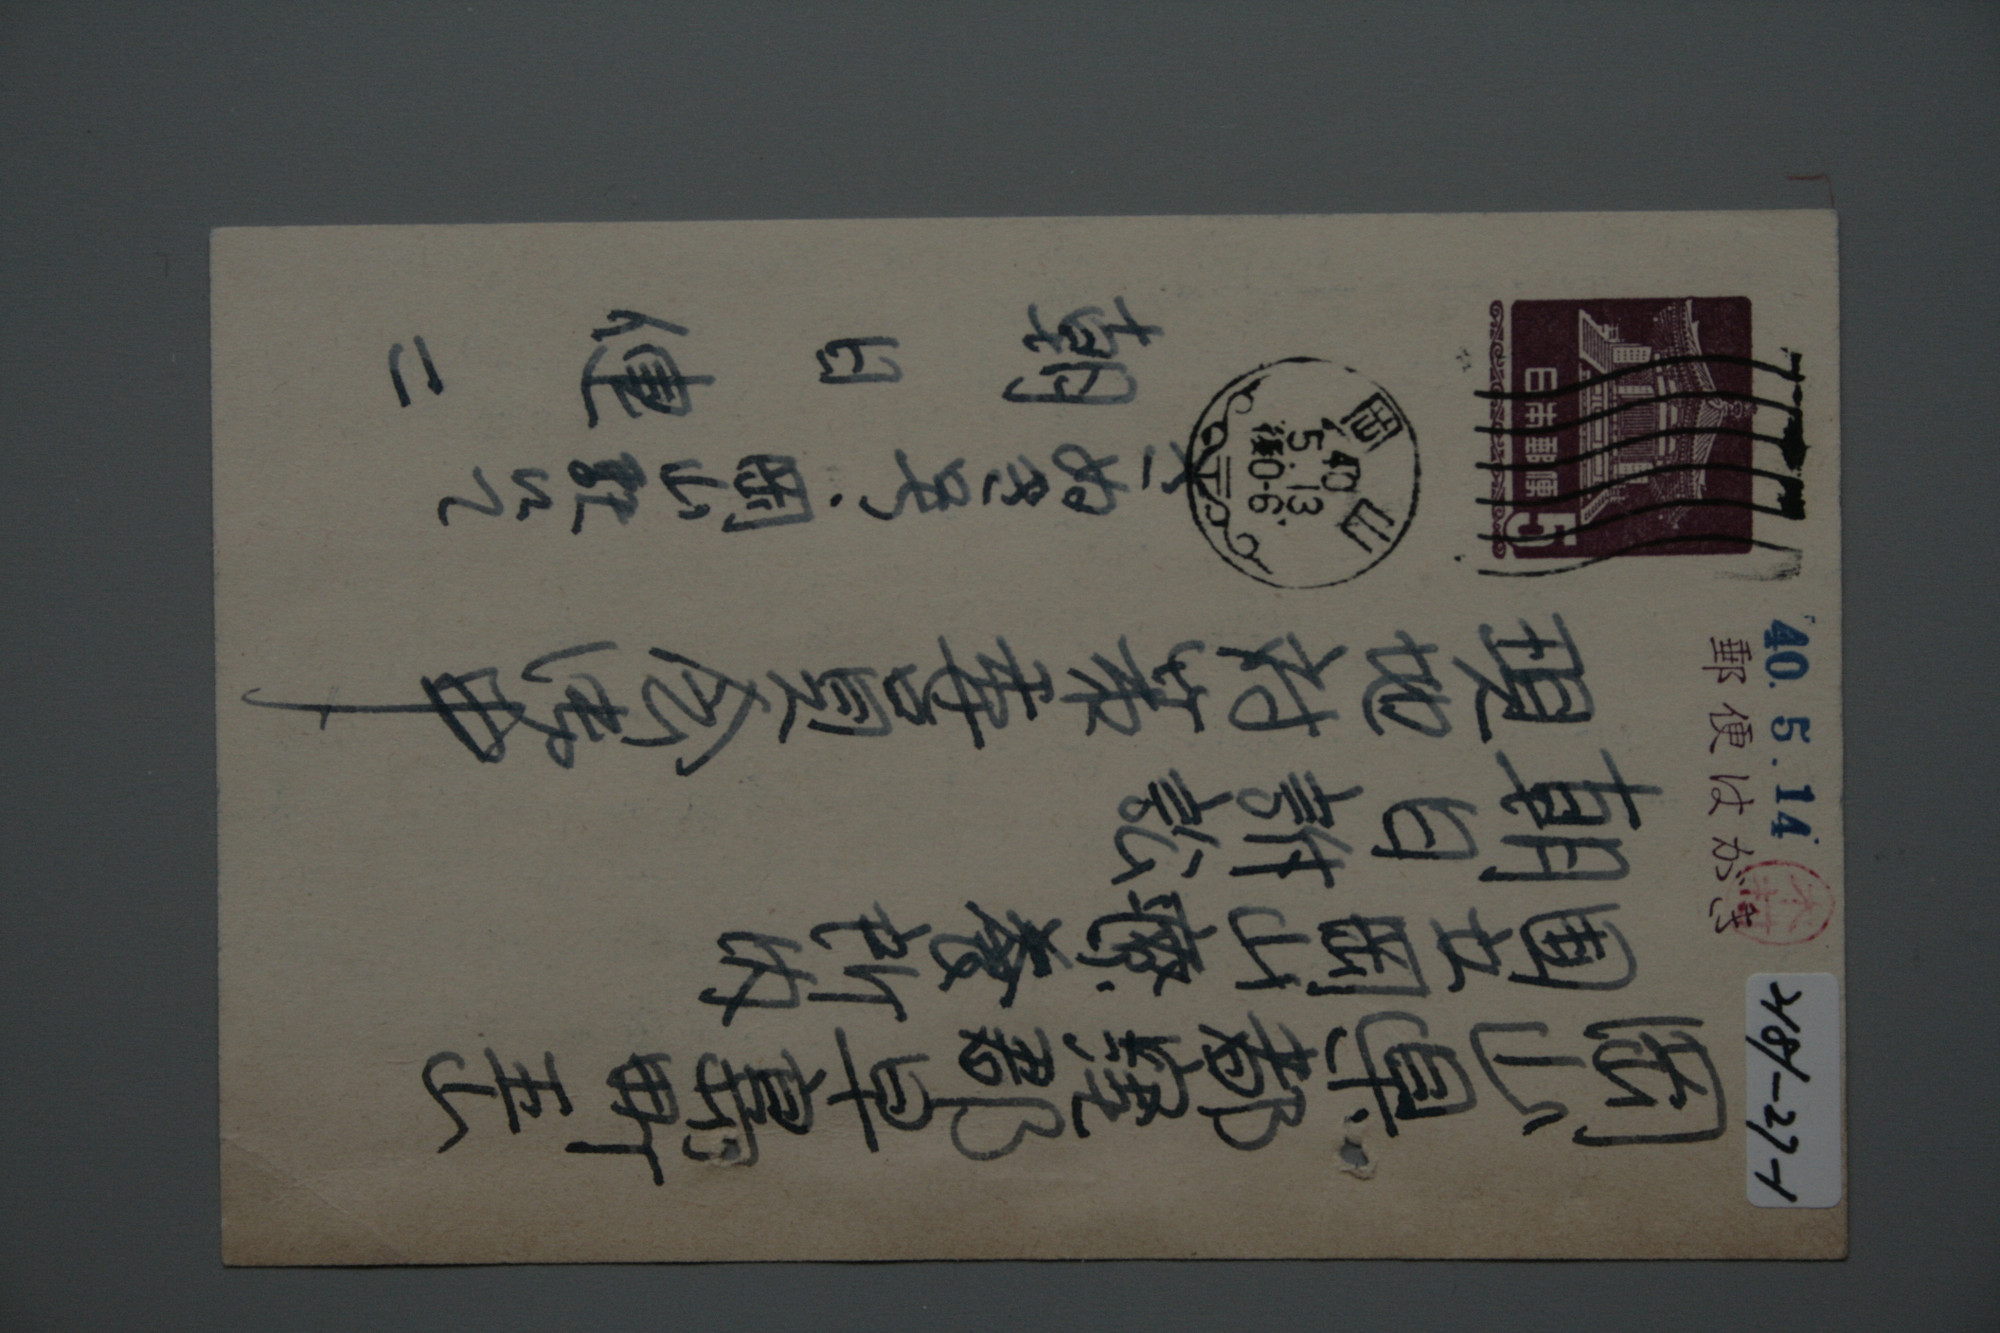 40. 5. 14
郵便はがき
日本郵便
5
岡山
40
5.13
後0-6
岡山県都窪郡早島町
国立岡山療養所内
朝日訴訟
現地対策委員会御中
岡山駅にて
朝日健二